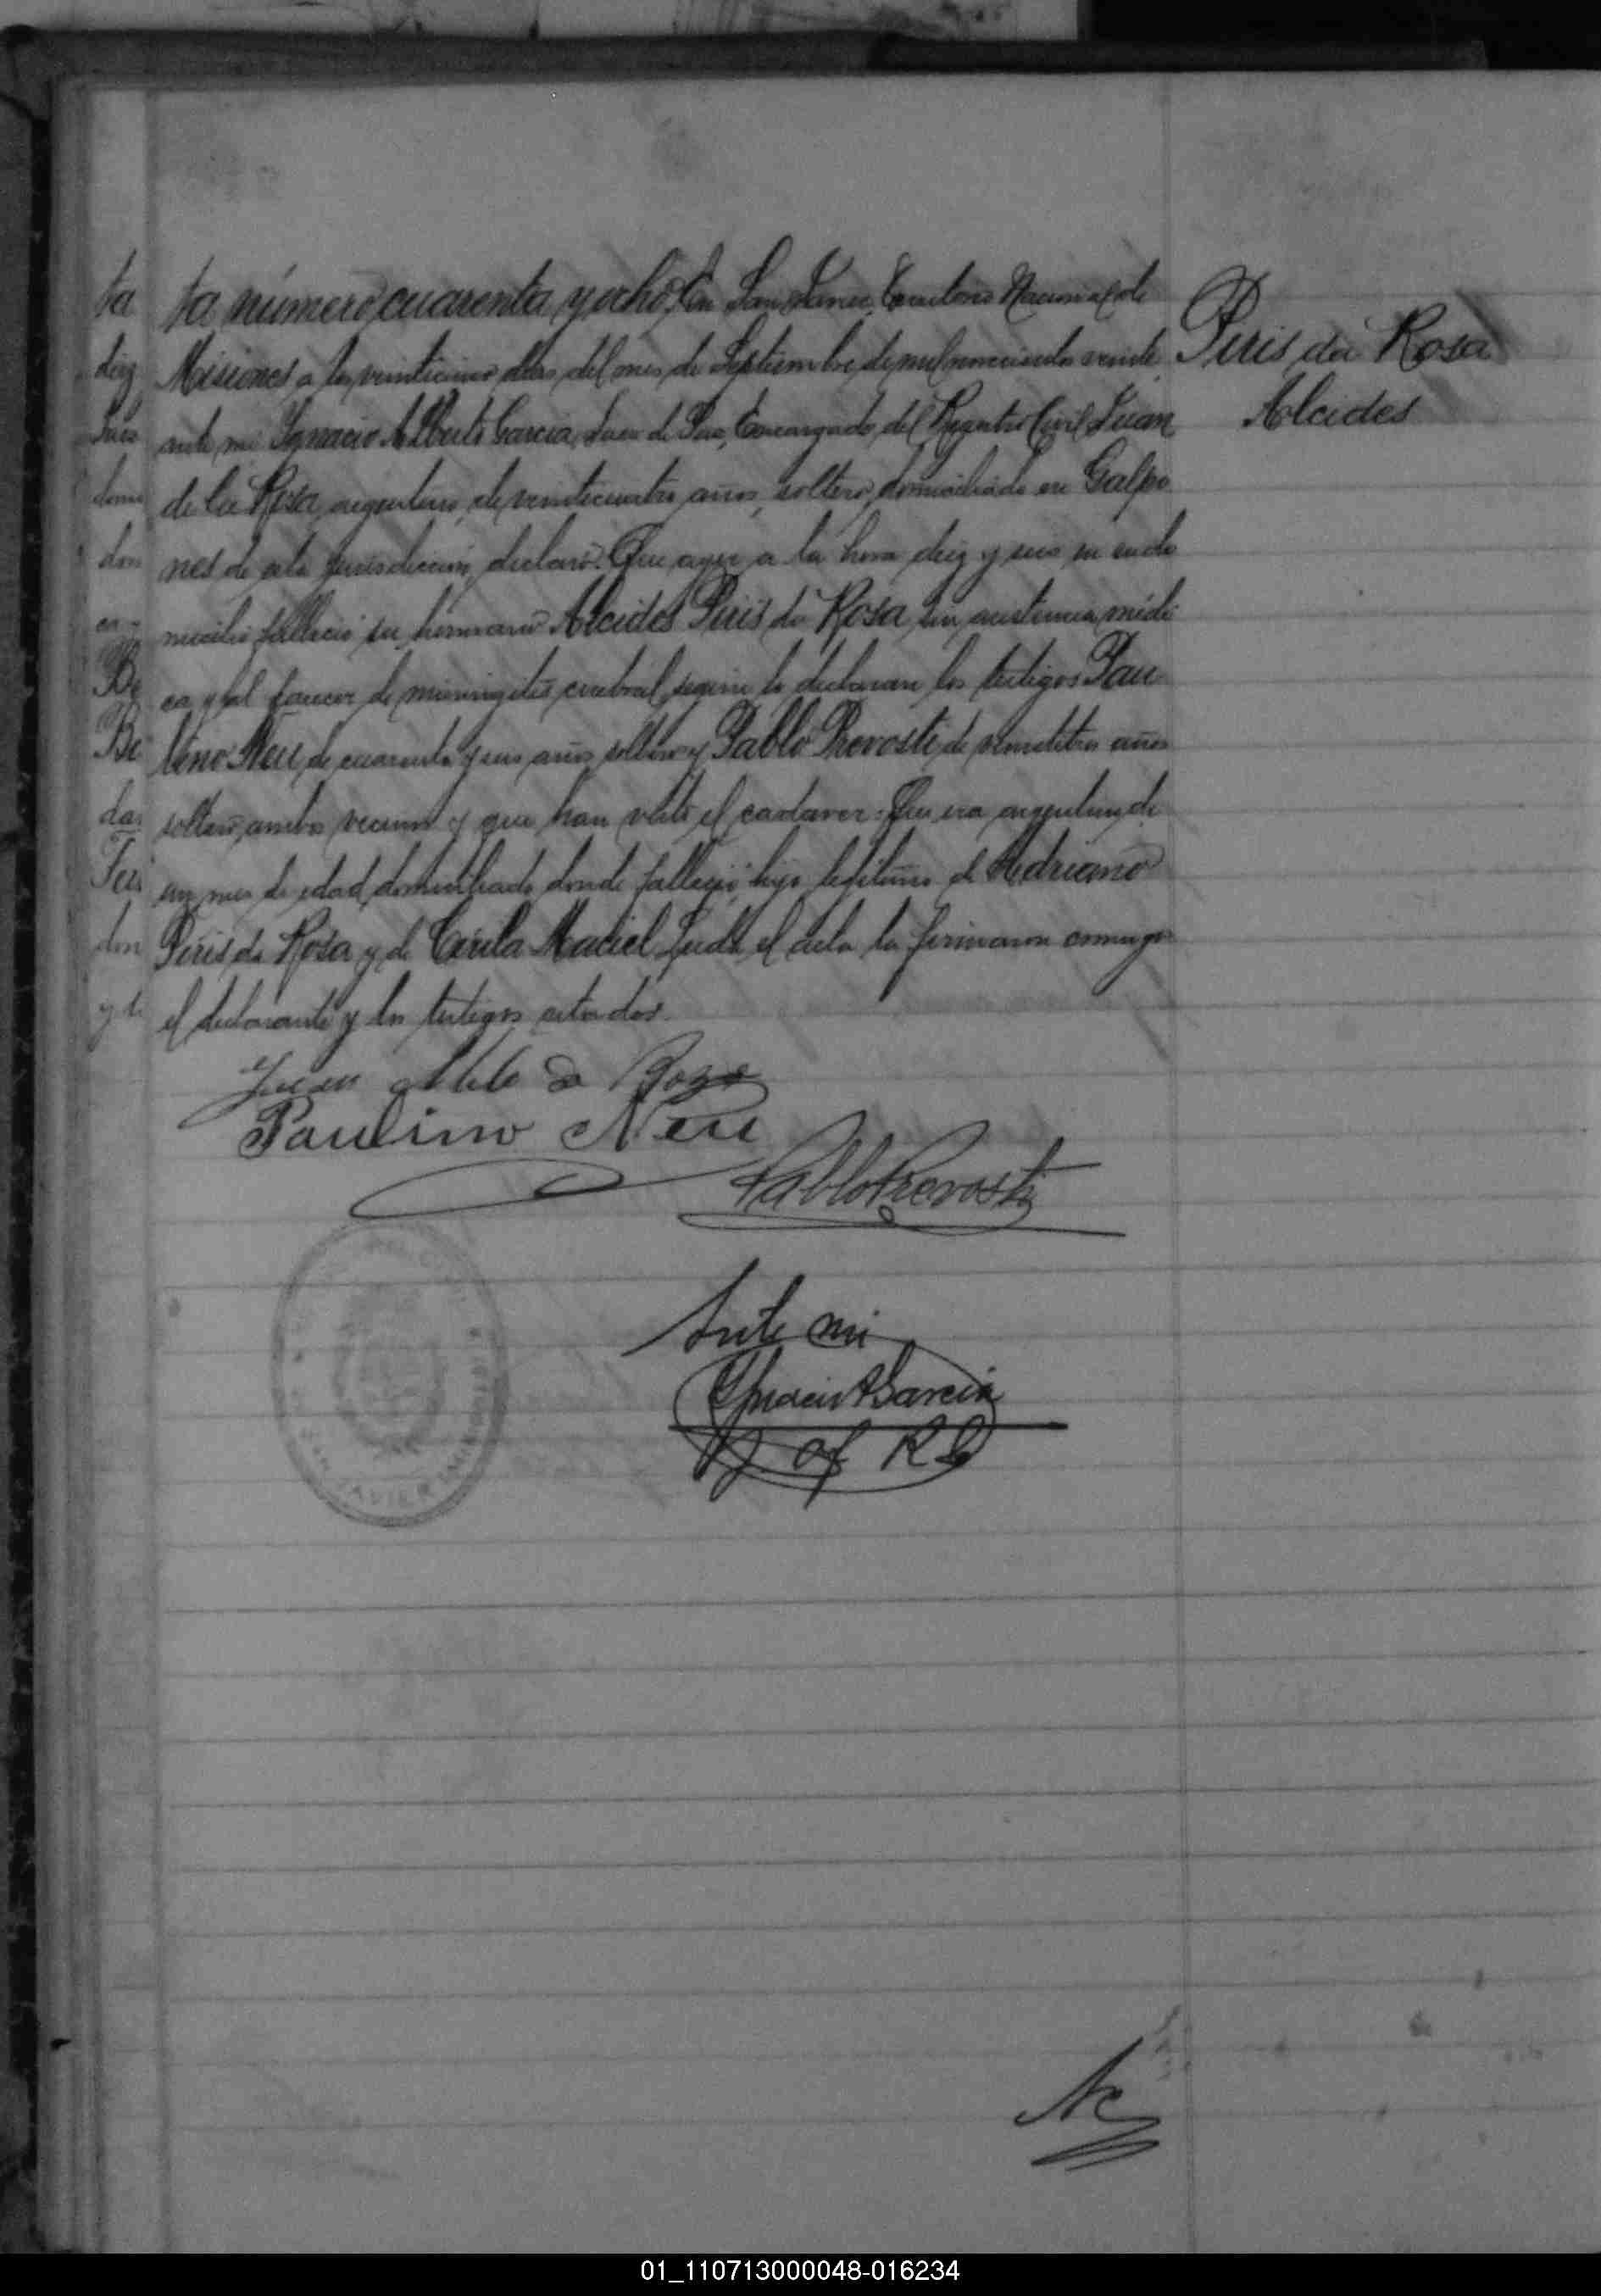 ta número cuarenta y ocho. En San Javier, Territorio Nacional de
Misiones a los veinticinco dias del mes de Septiembre de mil novecientos veinte
ante mi Ignacio Alberto Garcia, Juez de Paz, Encargado del Registro Civil Juan
de la Rosa, argentino, de veinticuatro años, soltero, domiciliado en Galpo
nes de esta jurisdiccion, declaró: Que ayer a la hora diez y seis en su do
micilio fallecio su hermano Alcides Piris da Rosa sin asistencia médi
ca y al parecer de miningitis cerebral, segun lo declaran los testigos Pau
lino Neu de cuarenta y seis años soltero y Pablo Prevosti de veintitres años
soltero, ambos vecinos y que han visto el cadaver: Que era argentino, de
un mes de edad, domiciliado donde falleció, hijo lejitimo de Adriano
Piris da Rosa y de Cirila Maciel. Leida el acta la firmaron conmigo
el declarante y los testigos citados.
Piris da Rosa
Alcides
Juan da Roza
Paulino Neu
Pablo Prevosti
Ante mi
Ignacio A Garcia
SAN JAVIER
01_110713000048-016234